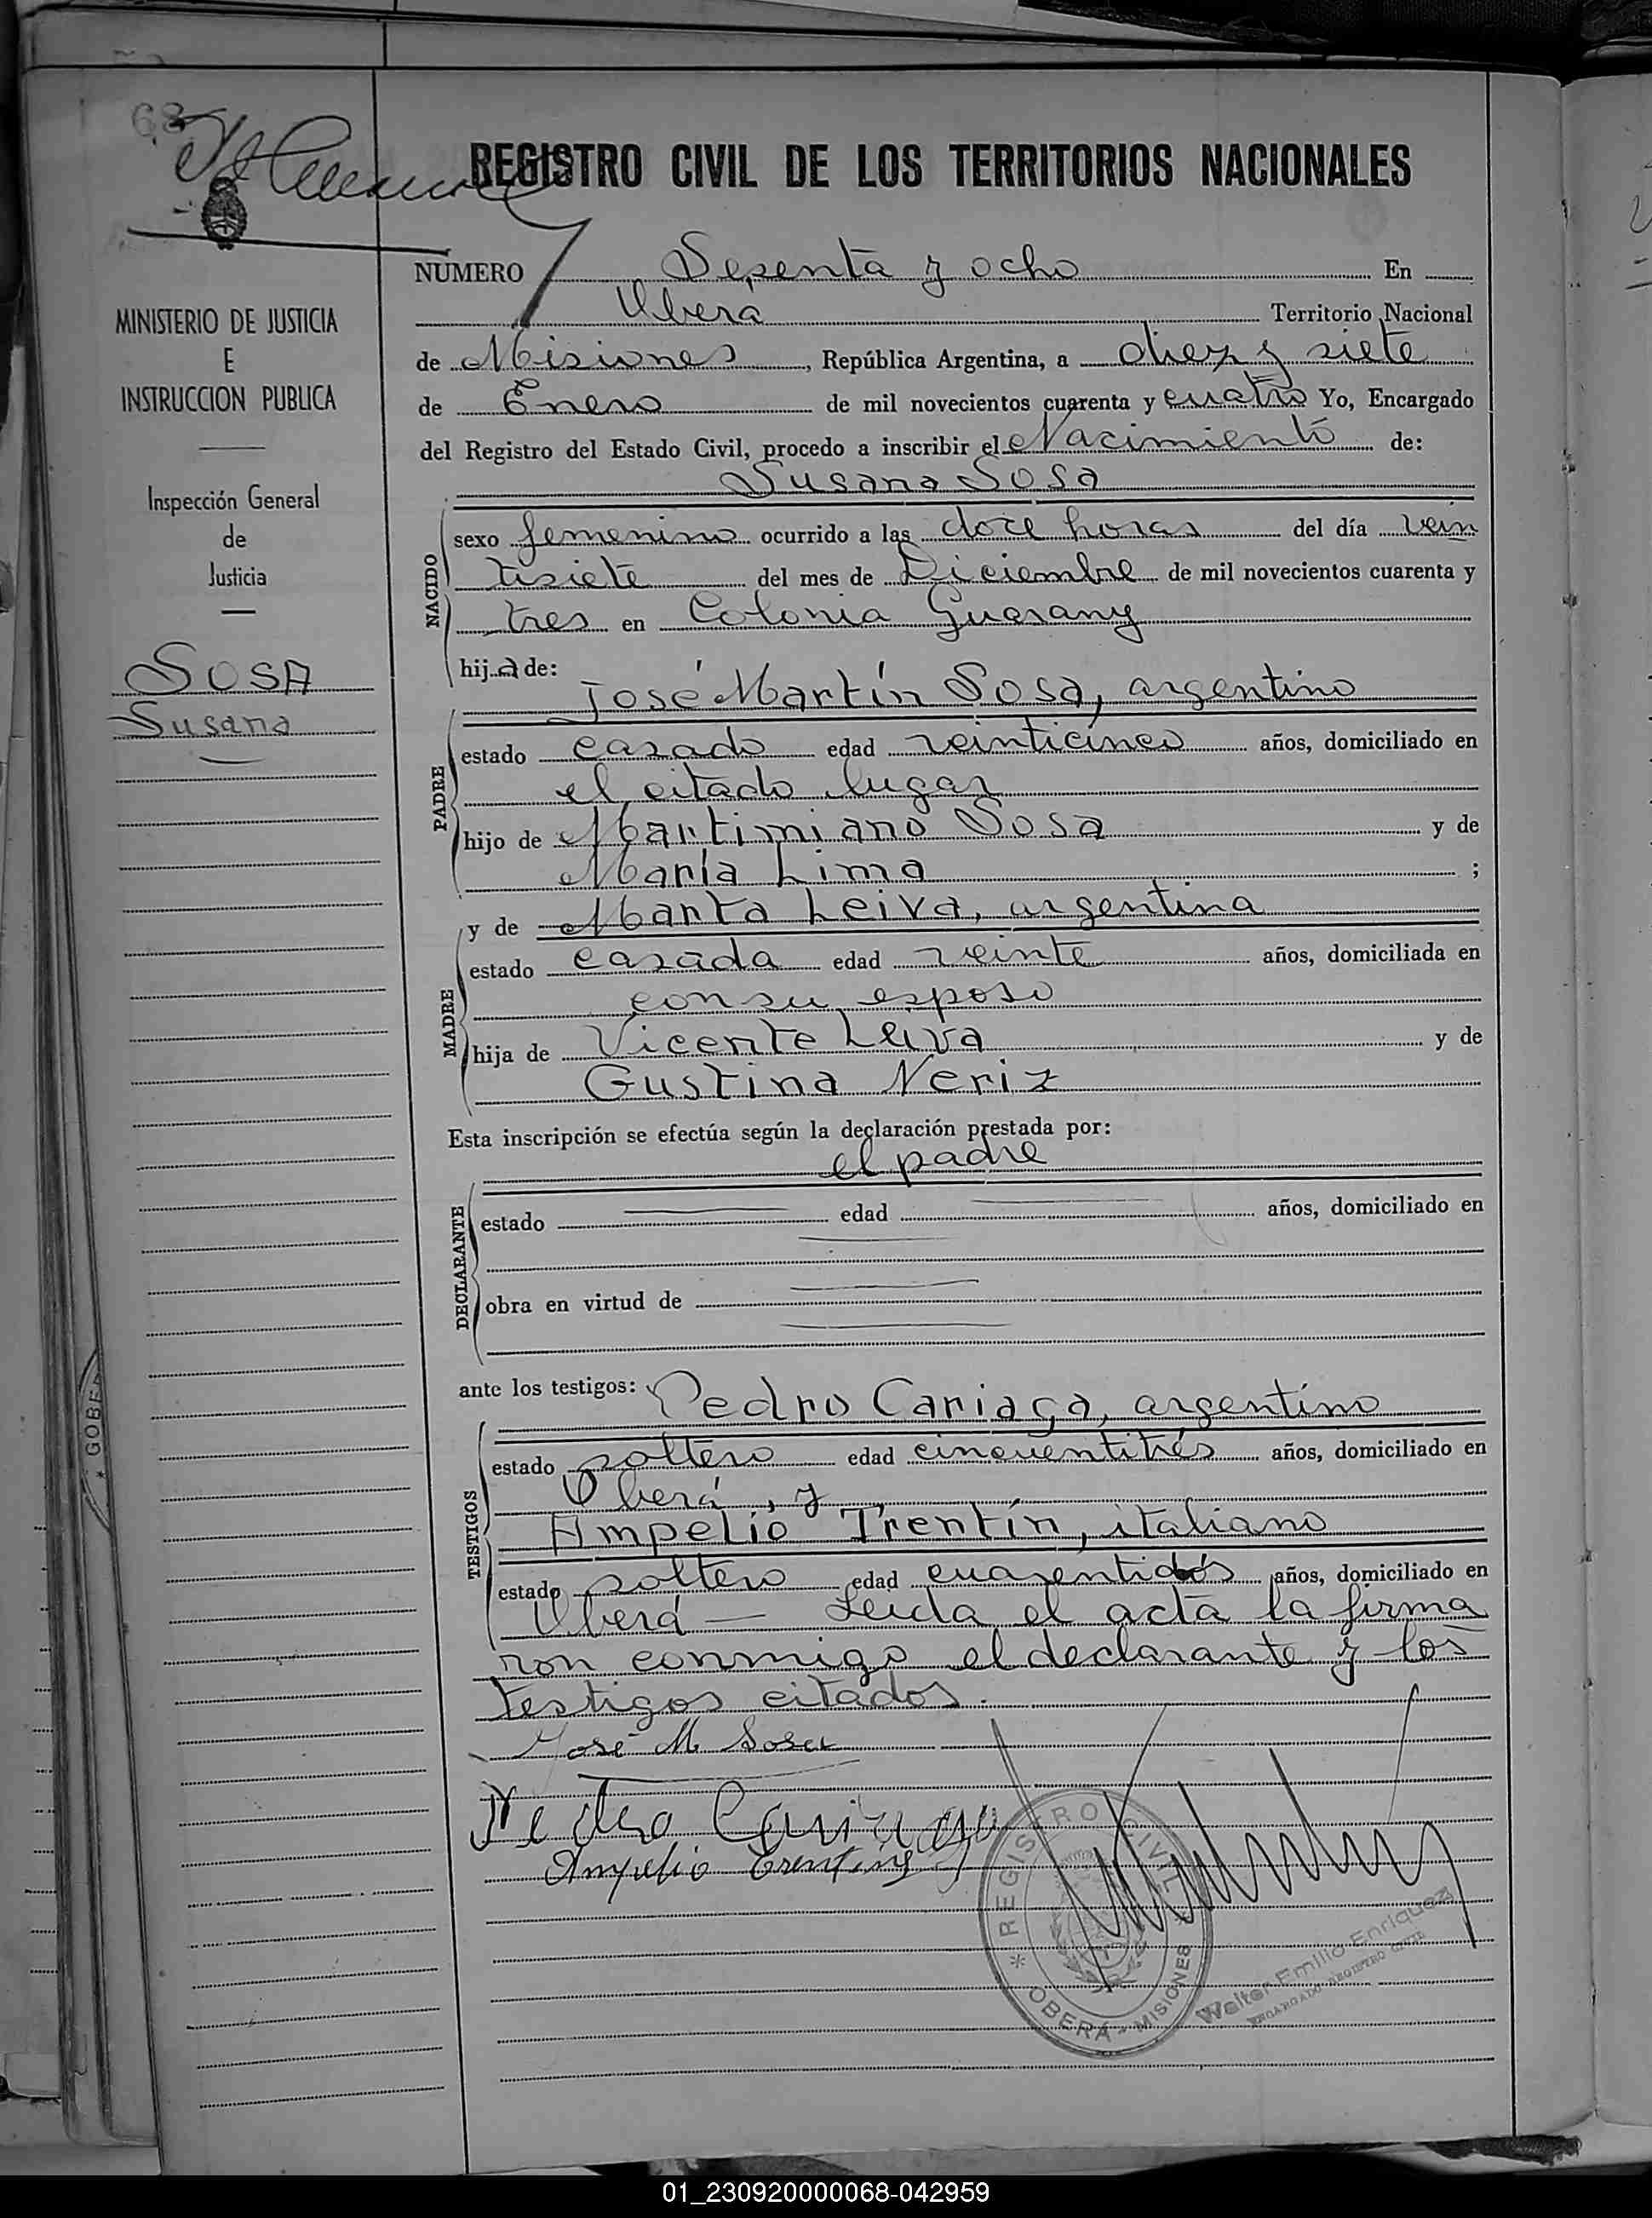 68
REGISTRO CIVIL DE LOS TERRITORIOS NACIONALES
MINISTERIO DE JUSTICIA
E
INSTRUCCION PUBLICA
Inspección General
de
Justicia
SOSA
Susana
NÚMERO Sesenta y ocho En
Oberá Territorio Nacional
de Misiones, República Argentina, a diez y siete
de Enero de mil novecientos cuarenta y cuatro Yo, Encargado
del Registro del Estado Civil, procedo a inscribir el Nacimiento de:
Susana Sosa
NACIDO
sexo femenino ocurrido a las doce horas del día vein
tisiete del mes de Diciembre de mil novecientos cuarenta y
tres en Colonia Guarany
hija de:
José Martín Sosa, argentino
PADRE
estado casado edad veinticinco años, domiciliado en
el citado lugar
hijo de Martimiano Sosa y de
María Lima ;
y de Marta Leiva, argentina
MADRE
estado casada edad veinte años, domiciliada en
con su esposo
hija de Vicente Leiva y de
Gustina Neriz
Esta inscripción se efectúa según la declaración prestada por:
el padre
DECLARANTE
estado edad años, domiciliado en
obra en virtud de
ante los testigos: Pedro Cariaga, argentino
TESTIGOS
estado soltero edad cincuentitrés años, domiciliado en
Oberá, y
Ampelio Trentín, italiano
estado soltero edad cuarentidós años, domiciliado en
Oberá — Leida el acta la firma
ron conmigo el declarante y los
testigos citados.
José M Sosa
Pedro Cariaga
Ampelio Trentin
* REGISTRO CIVIL *
OBERÁ - MISIONES
Walter Emilio Enriquez
ENCARGADO REGISTRO CIVIL
* GOBER
01_230920000068-042959